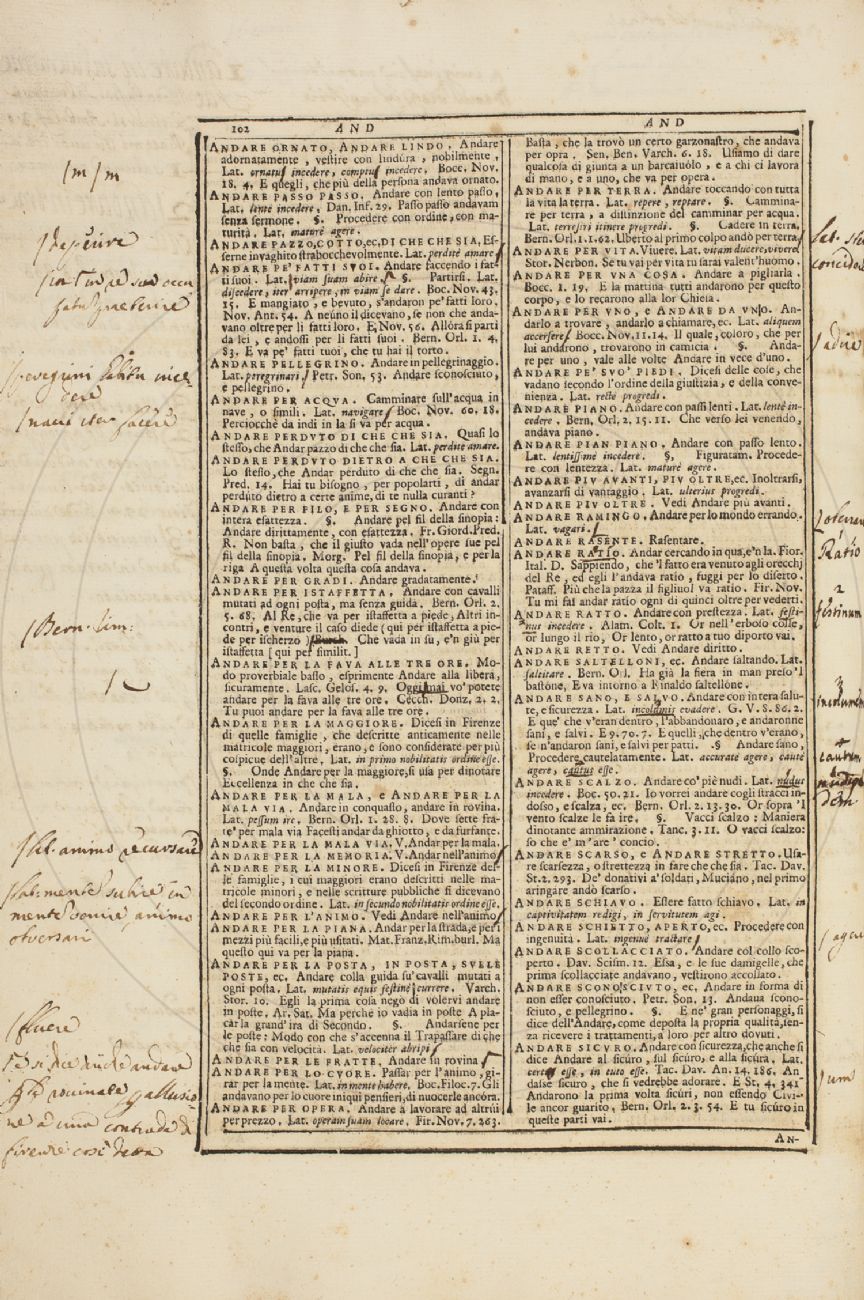 102 AND
AND
ANDARE ORNATO, ANDARE LINDO, Andare
adornatamente, vestire con lindura, nobilmente,
Lat. ornatus incedere, comptus incedere. Bocc. Nov.
18. 4. E quegli, che più della persona andava ornato.
ANDARE PASSO PASSO. Andare con lento passo,
Lat. lentè incedere, Dan. Inf. 29. Passo passo andavam
senza sermone. §. Procedere con ordine, con ma-
turità. Lat. maturè agere.
ANDARE PAZZO, COTTO, ec, DI CHE CHE SIA, Es-
serne invaghito strabocchevolmente. Lat. perditè amare
ANDARE PE' FATTI SUOI. Andare faccendo i fat-
ti suoi. Lat. viam suam abire. §. Partirsi. Lat.
discedere, iter arripere, in viam se dare. Boc. Nov. 43.
15. E mangiato, e bevuto, s'andaron pe' fatti loro.
Nov. Ant. 54. A neuno il dicevano, se non che anda-
vano oltre per li fatti loro. E, Nov. 56. Allóra si partì
da lei, e andossi per li fatti suoi. Bern. Orl. 1. 4.
83. E va pe' fatti tuoi, che tu hai il torto.
ANDARE PELLEGRINO. Andare in pellegrinaggio.
Lat. peregrinari. Petr. Son. 53. Andare sconosciuto,
e pellegrino.
ANDARE PER ACQVA. Camminare sull'acqua in
nave, o simili. Lat. navigare. Boc. Nov. 60. 18.
Perciocchè da indi in la si va per acqua.
ANDARE PERDVTO DI CHE CHE SIA. Quasi lo
stesso, che Andar pazzo di che che sia. Lat. perditè amare.
ANDARE PERDVTO DIETRO A CHE CHE SIA.
Lo stesso, che Andar perduto di che che sia. Segn.
Pred. 14. Hai tu bisogno, per popolarti, di andar
perdúto dietro a certe anime, di te nulla curanti?
ANDARE PER FILO, E PER SEGNO. Andare con
intera esattezza. §. Andare pel fil della sinopia:
Andare dirittamente, con esattezza. Fr. Giord. Pred.
R. Non basta, che il giusto vada nell'opere sue pel
fil della sinopia. Morg. Pel fil della sinopia, e per la
riga A questa volta questa cosa andava.
ANDARE PER GRADI. Andare gradatamente.
ANDARE PER ISTAFFETTA. Andare con cavalli
mutati ad ogni posta, ma senza guida. Bern. Orl. 2.
5. 68. Al Re, che va per istaffetta a piede, Altri in-
contri, e venture il caso diede (qui per istaffetta a pie-
de per ischerzo) Che vada in su, e'n giù per
istaffetta [qui per similit.]
ANDARE PER LA FAVA ALLE TRE ORE. Mo-
do proverbiale basso, esprimente Andare alla libera,
sicuramente. Lasc. Gelos. 4. 9. Oggi mai vo' potere
andare per la fava alle tre ore. Cecch. Donz. 2. 2.
Tu puoi andare per la fava alle tre ore.
ANDARE PER LA MAGGIORE. Dicesi in Firenze
di quelle famiglie, che descritte anticamente nelle
matricole maggiori, erano, e sono considerate per più
cospicue dell'altre, Lat. in primo nobilitatis ordine esse.
§. Onde Andare per la maggiore, si usa per dinotare
Eccellenza in che che sia.
ANDARE PER LA MALA, e ANDARE PER LA
MALA VIA. Andare in conquasso, andare in rovina.
Lat. pessum ire. Bern. Orl. 1. 28. 8. Dove sette fra-
te' per mala via Facesti andar da ghiotto, e da furfante.
ANDARE PER LA MALA VIA. V. Andar per la mala.
ANDARE PER LA MEMORIA. V. Andar nell'animo
ANDARE PER LA MINORE. Dicesi in Firenze del-
le famiglie, i cui maggiori erano descritti nelle ma-
tricole minori, e nelle scritture pubbliche si dicevano
del secondo ordine. Lat. in secundo nobilitatis ordine esse.
ANDARE PER L'ANIMO. Vedi Andare nell'animo
ANDARE PER LA PIANA. Andar per la strada, e per i
mezzi più facili, e più usitati. Mat. Franz. Rim. burl. Ma
questo qui va per la piana.
ANDARE PER LA POSTA, IN POSTA, SVLLE
POSTE, ec. Andare colla guida su' cavalli mutati a
ogni posta. Lat. mutatis equis festinè currere. Varch.
Stor. 10. Egli la prima cosa negò di volervi andare
in poste. Ar. Sat. Ma perchè io vadia in poste A pla-
car la grand' ira di Secondo. §. Andarsene per
le poste: Modo con che s'accenna il Trapassare di che
che sia con velocità. Lat. velociter abripi
ANDARE PER LE FRATTE. Andare in rovina
ANDARE PER LO CVORE. Passar per l'animo, gi-
rar per la mente. Lat. in mente habere. Boc. Filoc. 7. Gli
andavano per lo cuore iniqui pensieri, di nuocerle ancora.
ANDARE PER OPERA. Andare a lavorare ad altrui
per prezzo. Lat. operam suam locare. Fir. Nov. 7. 263.
Basta, che la trovò un certo garzonastro, che andava
per opra. Sen. Ben. Varch. 6. 18. Usiamo di dare
qualcosa di giunta a un barcaiuolo, e a chi ci lavora
di mano, e a uno, che va per opera.
ANDARE PER TERRA. Andare toccando con tutta
la vita la terra. Lat. repere, reptare. §. Cammina-
re per terra, a distinzion del camminar per acqua.
Lat. terrestri itinere progredi. §. Cadere in terra,
Bern. Orl. 1. 1. 62. Uberto al primo colpo andò per terra
ANDARE PER VITA. Vivere, Lat. vitam ducere, vivere
Stor. Nerbon. Se tu vai per vita tu sarai valent'huomo.
ANDARE PER VNA COSA. Andare a pigliarla.
Bocc. 1. 19. E la mattina tutti andarono per questo
corpo, e lo reçarono alla lor Chiesa.
ANDARE PER VNO, e ANDARE DA VNO. An-
darlo a trovare, andarlo a chiamare, ec. Lat. aliquem
accersere. Bocc. Nov. 11. 14. Il quale, coloro, che per
lui andarono, trovarono in camicia. §. Anda-
re per uno, vale alle volte Andare in vece d'uno.
ANDARE PE' SVO' PIEDI. Dicesi delle cose, che
vadano secondo l'ordine della giustizia, e della conve-
nienza. Lat. recte progredi.
ANDARE PIANO. Andare con passi lenti. Lat. lentè in-
cedere. Bern. Orl. 2. 15. 11. Che verso lei venendo,
andava piano.
ANDARE PIAN PIANO. Andare con passo lento.
Lat. lentissimè incedere. §, Figuratam. Procede-
re con lentezza. Lat. maturè agere.
ANDARE PIV AVANTI, PIV OLTRE, ec. Inoltrarsi,
avanzarsi di vantaggio. Lat. ulterius progredi.
ANDARE PIV OLTRE. Vedi Andare più avanti.
ANDARE RAMINGO. Andare per lo mondo errando.
Lat. vagari.
ANDARE RASENTE. Rasentare.
ANDARE RATIO. Andar cercando in qua, e'n la. Fior.
Ital. D. Sappiendo, che 'l fatto era venuto agli orecchj
del Re, ed egli l'andava ratio, fuggì per lo diserto.
Pataff. Più che la pazza il figliuol va ratio. Fir. Nov.
Tu mi fai andar ratio ogni di quinci oltre per vederti.
ANDARE RATTO. Andare con prestezza. Lat. festi-
nus incedere. Alam. Colt. 1. Or nell'erboso colle,
or lungo il rio, Or lento, or ratto a tuo diporto vai.
ANDARE RETTO. Vedi Andare diritto.
ANDARE SALTELLONI, ec. Andare saltando. Lat.
saltitare. Bern. Orl. Ha già la fiera in man preso'l
bastone, Eva intorno a Rinaldo saltellone.
ANDARE SANO, E SALVO. Andare con intera salu-
te, e sicurezza. Lat. incolumis evadere. G. V. 8. 86. 2.
E que' che v'eran dentro, l'abbandonaro, e andaronne
sani, e salvi. E 9. 70. 7. E quelli, che dentro v'erano,
se n'andaron sani, e salvi per patti. §. Andare sano,
Procedere cautelatamente. Lat. accuratè agere, cautè
agere, cautus esse.
ANDARE SCALZO. Andare co' piè nudi. Lat. nudus
incedere. Boc. 50. 21. Io vorrei andare cogli stracci in-
dosso, e scalza, ec. Bern. Orl. 2. 13. 30. Or sopra 'l
vento scalze le fa ire. §. Vacci scalzo: Maniera
dinotante ammirazione. Tanc. 3. 11. O vacci scalzo:
so che e' m'are' concio.
ANDARE SCARSO, e ANDARE STRETTO. Usa-
re scarsezza, o strettezza in fare che che sia. Tac. Dav.
St. 2. 293. De' donativi a' soldati, Muciano, nel primo
aringare andò scarso.
ANDARE SCHIAVO. Essere fatto schiavo. Lat. in
captivitatem redigi, in servitutem agi.
ANDARE SCHIETTO, APERTO, ec. Procedere con
ingenuità. Lat. ingenuè tractare
ANDARE SCOLLACCIATO. Andare col collo sco-
perto. Dav. Scism. 12. Essa, e le sue damigelle, che
prima scollacciate andavano, vestirono accollato.
ANDARE SCONOSCIVTO, ec, Andare in forma di
non esser conosciuto. Petr. Son. 13. Andava scono-
sciuto, e pellegrino. §. E ne' gran personaggi, si
dice dell'Andare, come deposta la propria qualità, sen-
za ricevere i trattamenti, a loro per altro dovuti.
ANDARE SICVRO. Andare con sicurezza, che anche si
dice Andare al sicuro, sul sicuro, e alla sicura. Lat.
esse, in tuto esse. Tac. Dav. An. 14. 186. An-
dasse sicuro, che si vedrebbe adorare. E St, 4. 341
Andarono la prima volta sicuri, non essendo Civi-
le ancor guarito, Bern. Orl. 2. 3. 54. E tu sicuro in
queste parti vai.
AN-
m m
peregrini
iter facere
Bern. Sim:
animo recursare
mente subire in
animo
fluere
si dice anche andare
ad una contrada di
firenze così detta
Ratio
2
festinum
3
incolumem
4
cautum